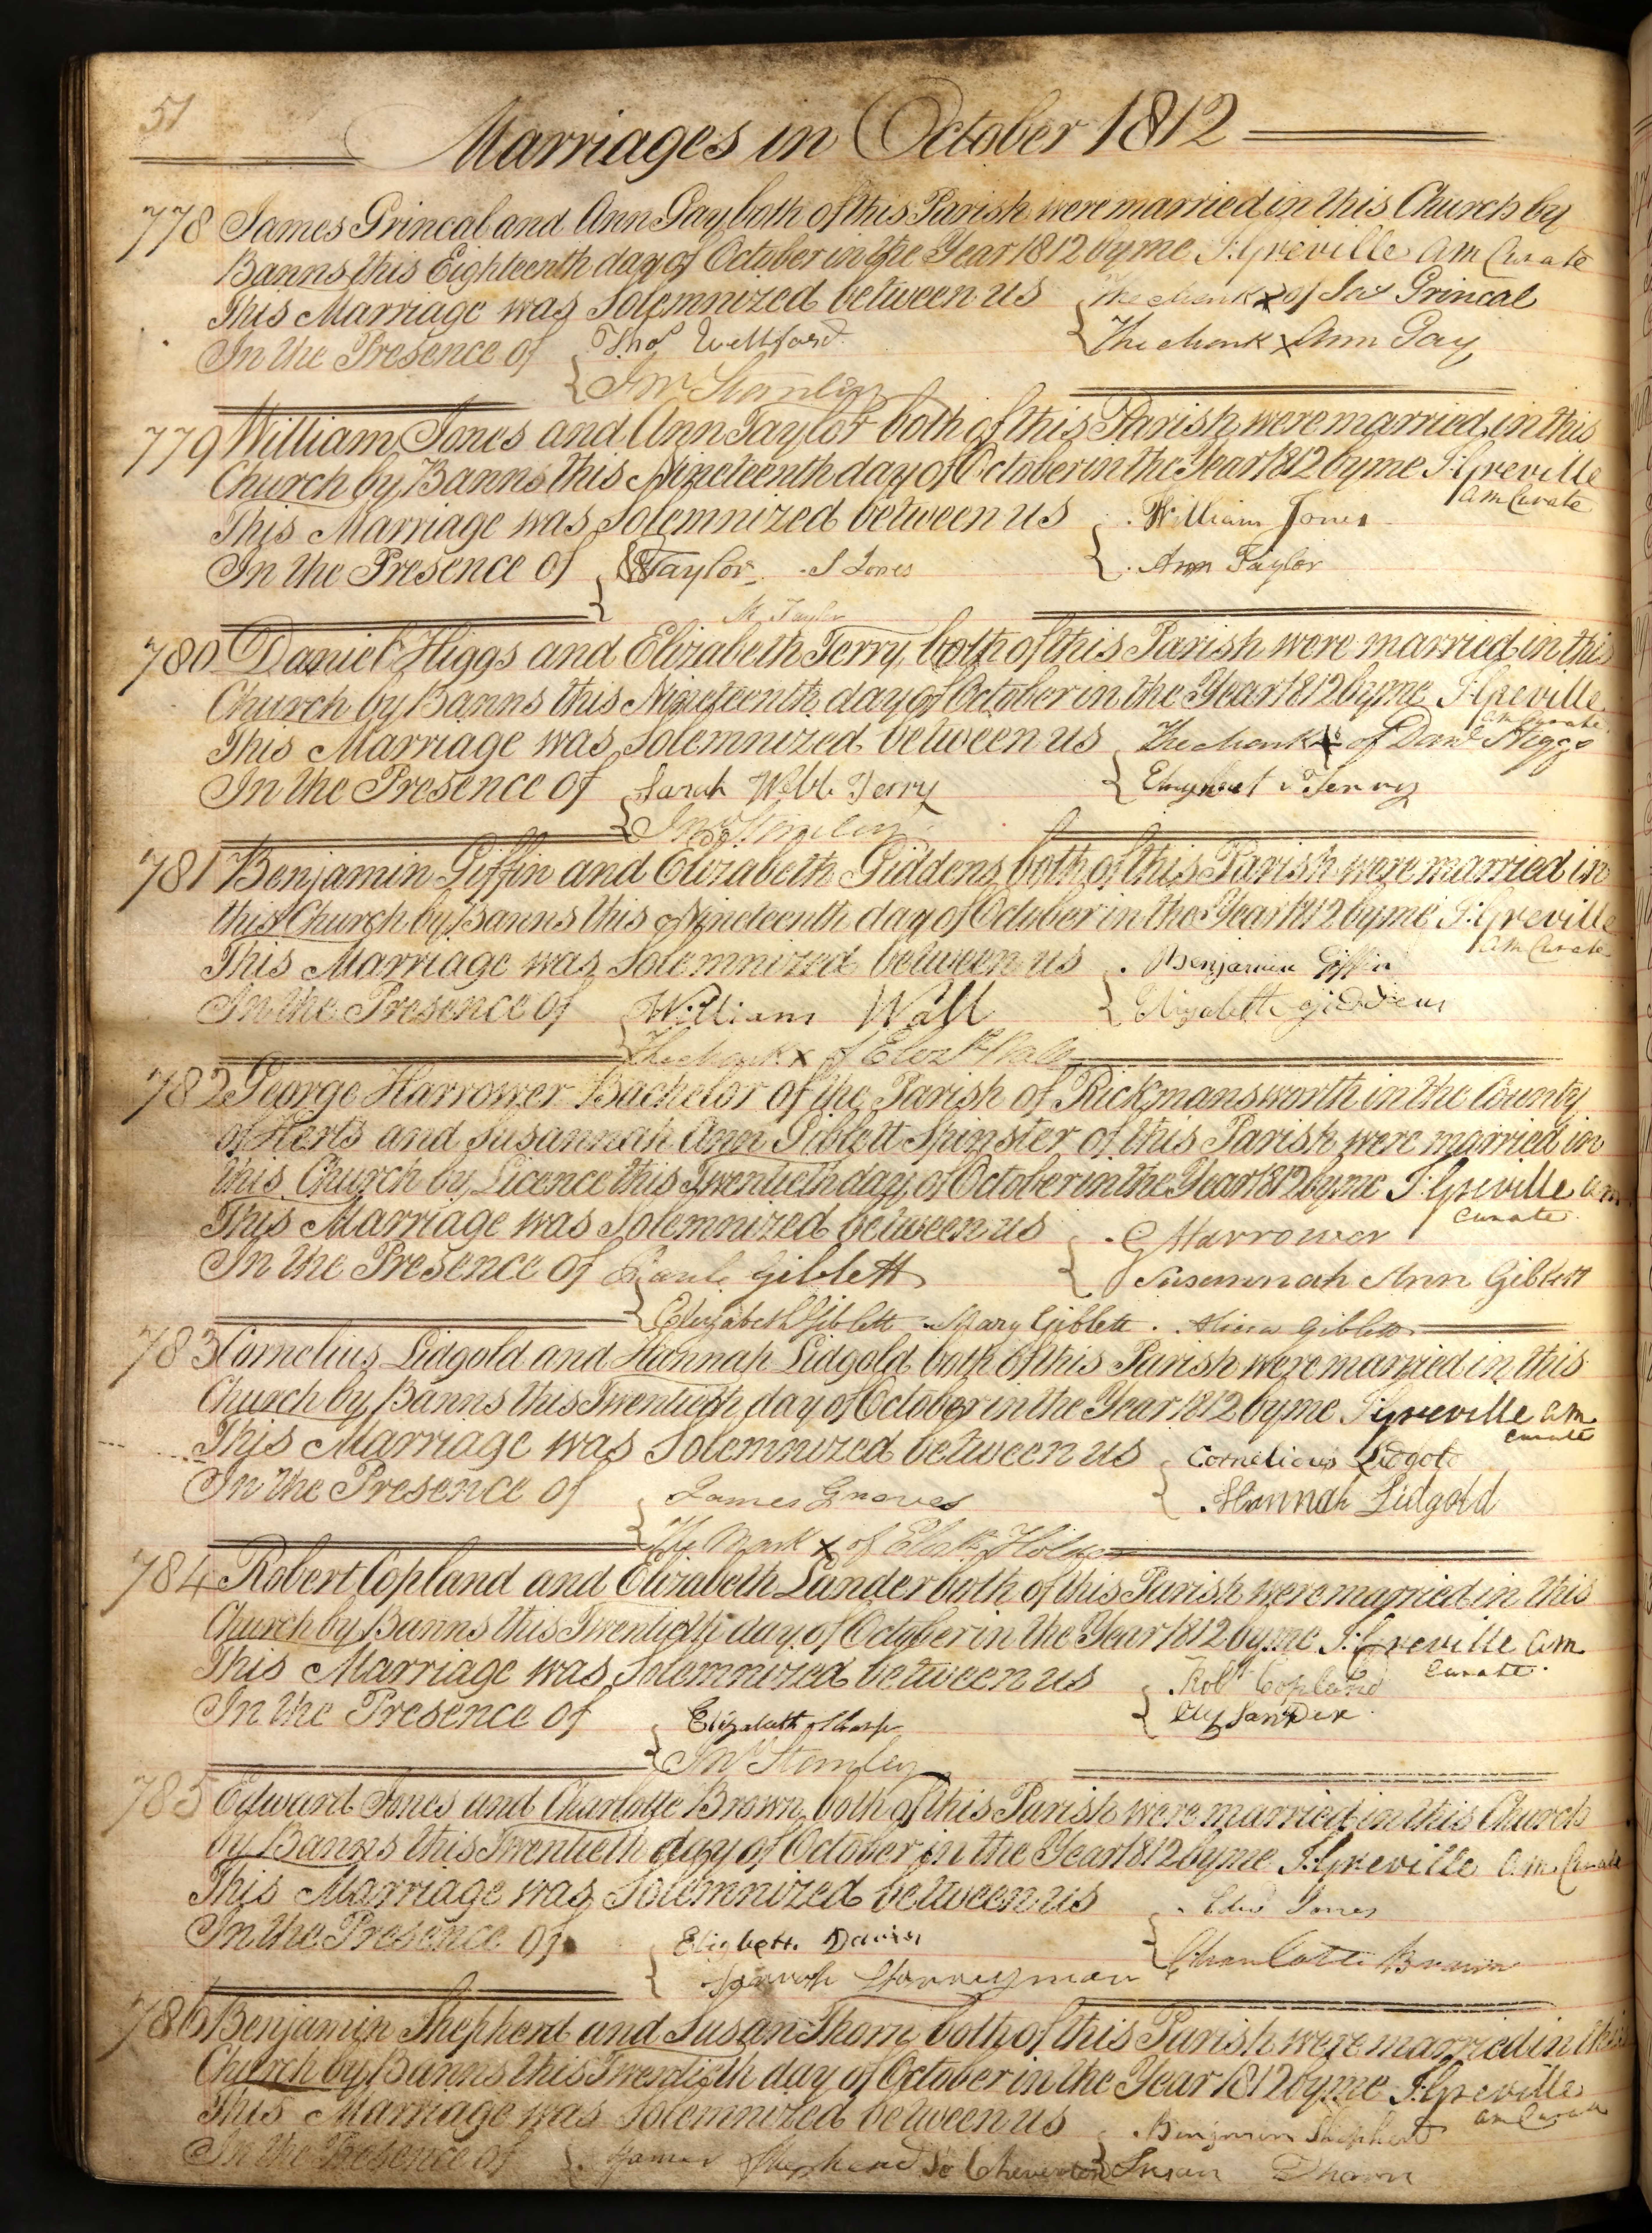 51
Marriages in October 1812
778 James Grincal and Ann Gay both of this Parish were married in this Church by
Banns this Eighteenth day of October in the Year 1812 by me J: Greville am Curate
This Marriage was Solemnized between us The Mark x of Jas Grincal
In the Presence of Thos The Mark x Ann Gay
Jno Stanley
779 William Jones and Ann Taylor both of this Parish were married in this
Church by Banns this Nineteenth day of October in the Year 1812 by me J: Greville
am Curate
This Marriage was Solemnized between us William Jones
In the Presence of Taylor S Jones Ann Taylor
M Taylor
780 Daniel Higgs and Elizabeth Terry both of this Parish were married in this
Church by Banns this Nineteenth day of October in the Year 1812 by me J: Greville
am Curate
This Marriage was Solemnized between us The Mark x of Danl Higgs
In the Presence of Sarah Webb Terry Terry
Jno Stanley
781 Benjamin Giffin and Elizabeth Giddens both of this Parish were married in
this Church by Banns this Nineteenth day of October in the Year 1812 by me J: Greville
am Curate
This Marriage was Solemnized between us Benjamin Giffin
In the Presence of William Wall Elizabeth Giddens
The Mark x of Elizth
782 George Harrower Bachelor of the Parish of Rickmansworth in the County
of Herts and Susannah Ann Giblett Spinster of this Parish were married in
this Church by Licence this Twentieth day of October in the Year 1812 by me J: Greville am
Curate
This Marriage was Solemnized between us G Harrower
In the Presence of Giblett Susannah Ann Giblett
Elizabeth Giblett Mary Giblett Giblett
783 Cornelius Lidgold and Hannah Lidgold both of this Parish were married in this
Church by Banns this Twentieth day of October in the Year 1812 by me J: Greville am
Curate
This Marriage was Solemnized between us Cornelious Lidgold
In the Presence of James Graves Hannah Lidgold
The Mark x of
784 Robert Copland and Elizabeth Lander both of this Parish were married in this
Church by Banns this Twentieth day of October in the Year 1812 by me J: Greville am
Curate
This Marriage was Solemnized between us Robt Copland
In the Presence of Elizabeth Sharp
Jno Stanley
785 Edward Jones and Charlotte Brown both of this Parish were married in this Church
by Banns this Twentieth day of October in the Year 1812 by me J: Greville am Curate
This Marriage was Solemnized between us Edwd Jones
In the Presence of Davis Charlotte Brown
Sarah
786 Benjamin Shepherd and Susan Thorn both of this Parish were married in this
Church by Banns this Twentieth day of October in the Year 1812 by me J: Greville
am Curate
This Marriage was Solemnized between us Benjamin Shepherd
In the Presence of James Shepherd Susan Thorn